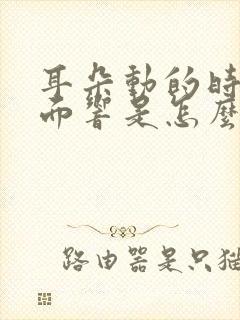 耳朵動的時
而響是怎麼
路由器是只貓